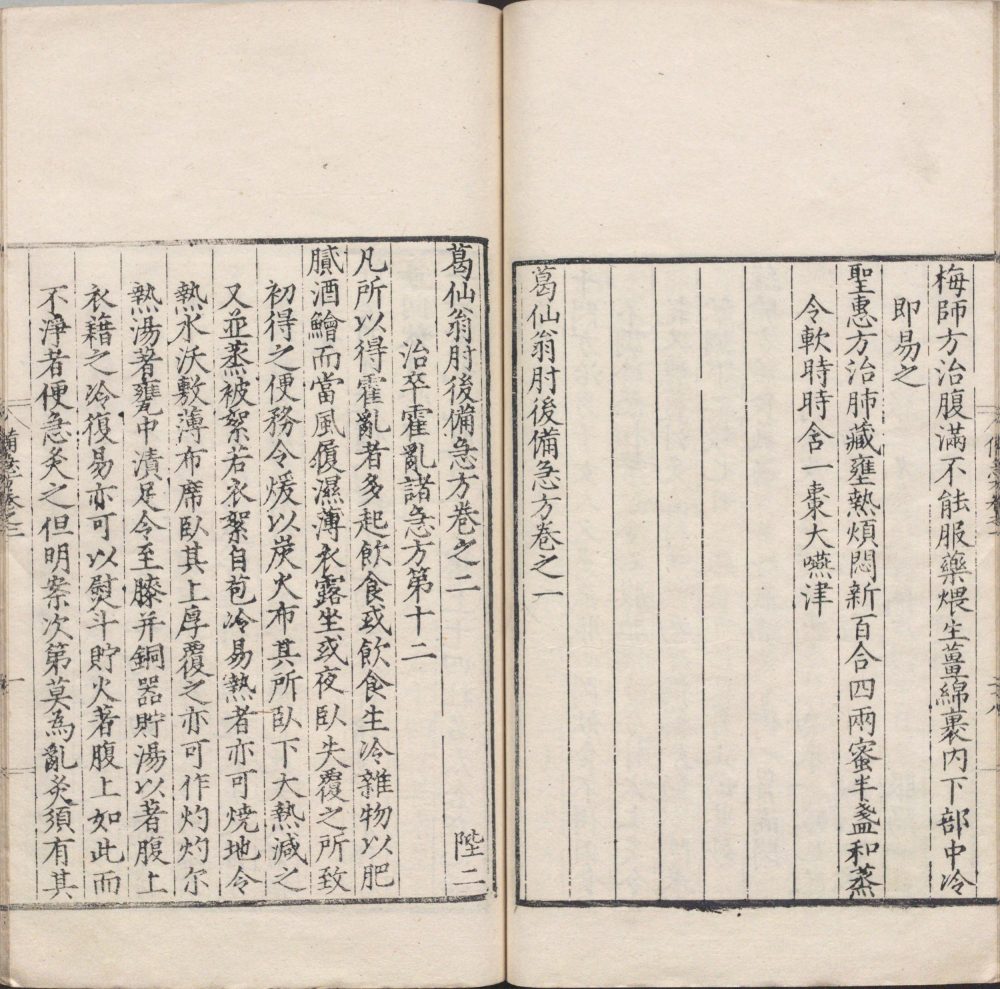 梅師方治腹滿不能服藥煨生薑綿裹内下部中冷
即易之
聖惠方治肺藏壅熱煩悶新百合四兩蜜半盞和蒸
令軟時時含一棗大嚥津
葛仙翁肘後備急方卷之一
葛仙翁肘後備急方卷之二
陛二
治卒霍亂諸急方第十二
凡所以得霍亂者多起飲食或飲食生冷雜物以肥
膩酒鱠而當風履濕薄衣露坐或夜臥失覆之所致
初得之便務令煖以炭火布其所臥下大熱減之
又並蒸被絮若衣絮自苞冷易熱者亦可燒地令
熱水沃敷薄布席臥其上厚覆之亦可作灼灼尔
熱湯著甕中漬足令至膝并銅器貯湯以著腹上
衣藉之冷復易亦可以熨斗貯火著腹上如此而
不淨者便急灸之但明案次第莫為亂灸須有其
備急方卷之二
一